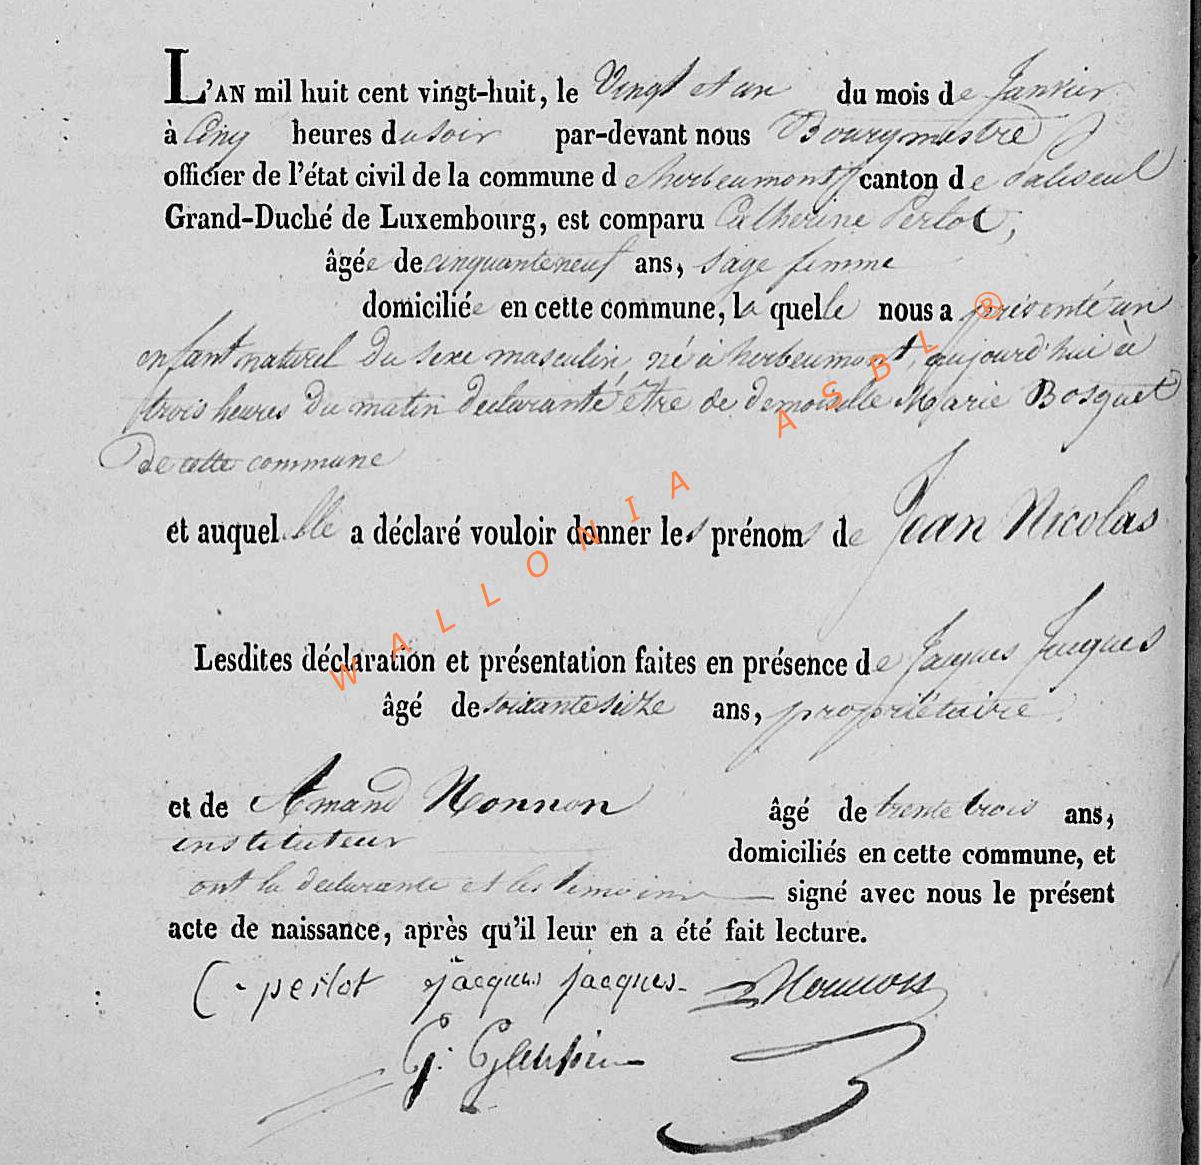 L'AN mil huit cent vingt-huit, le Vingt et un du mois de Janvier
à Cinq heures du soir par-devant nous Bourgmestre
officier de l'état civil de la commune d'herbeumont canton de paliseul
Grand-Duché de Luxembourg, est comparu Catherine Perlot,
âgée de cinquante neuf ans, sage femme
domiciliée en cette commune, la quelle nous a présenté un
enfant naturel Du sexe masculin, né à herbeumont, aujourd'hui à
trois heures Du matin declarante être de demoiselle Marie Bosquet
de cette commune
et auquel elle a déclaré vouloir donner les prénoms de Jean Nicolas
Lesdites déclaration et présentation faites en présence de Jacques Jacques
âgé de soixante seize ans, propriétaire
et de Amand Nonnon âgé de trente trois ans,
instituteur
domiciliés en cette commune, et
ont la declarante et les temoins signé avec nous le présent
acte de naissance, après qu'il leur en a été fait lecture.
C. perlot jacques jacques Nonnon
G.
WALLONIA ASBL ®